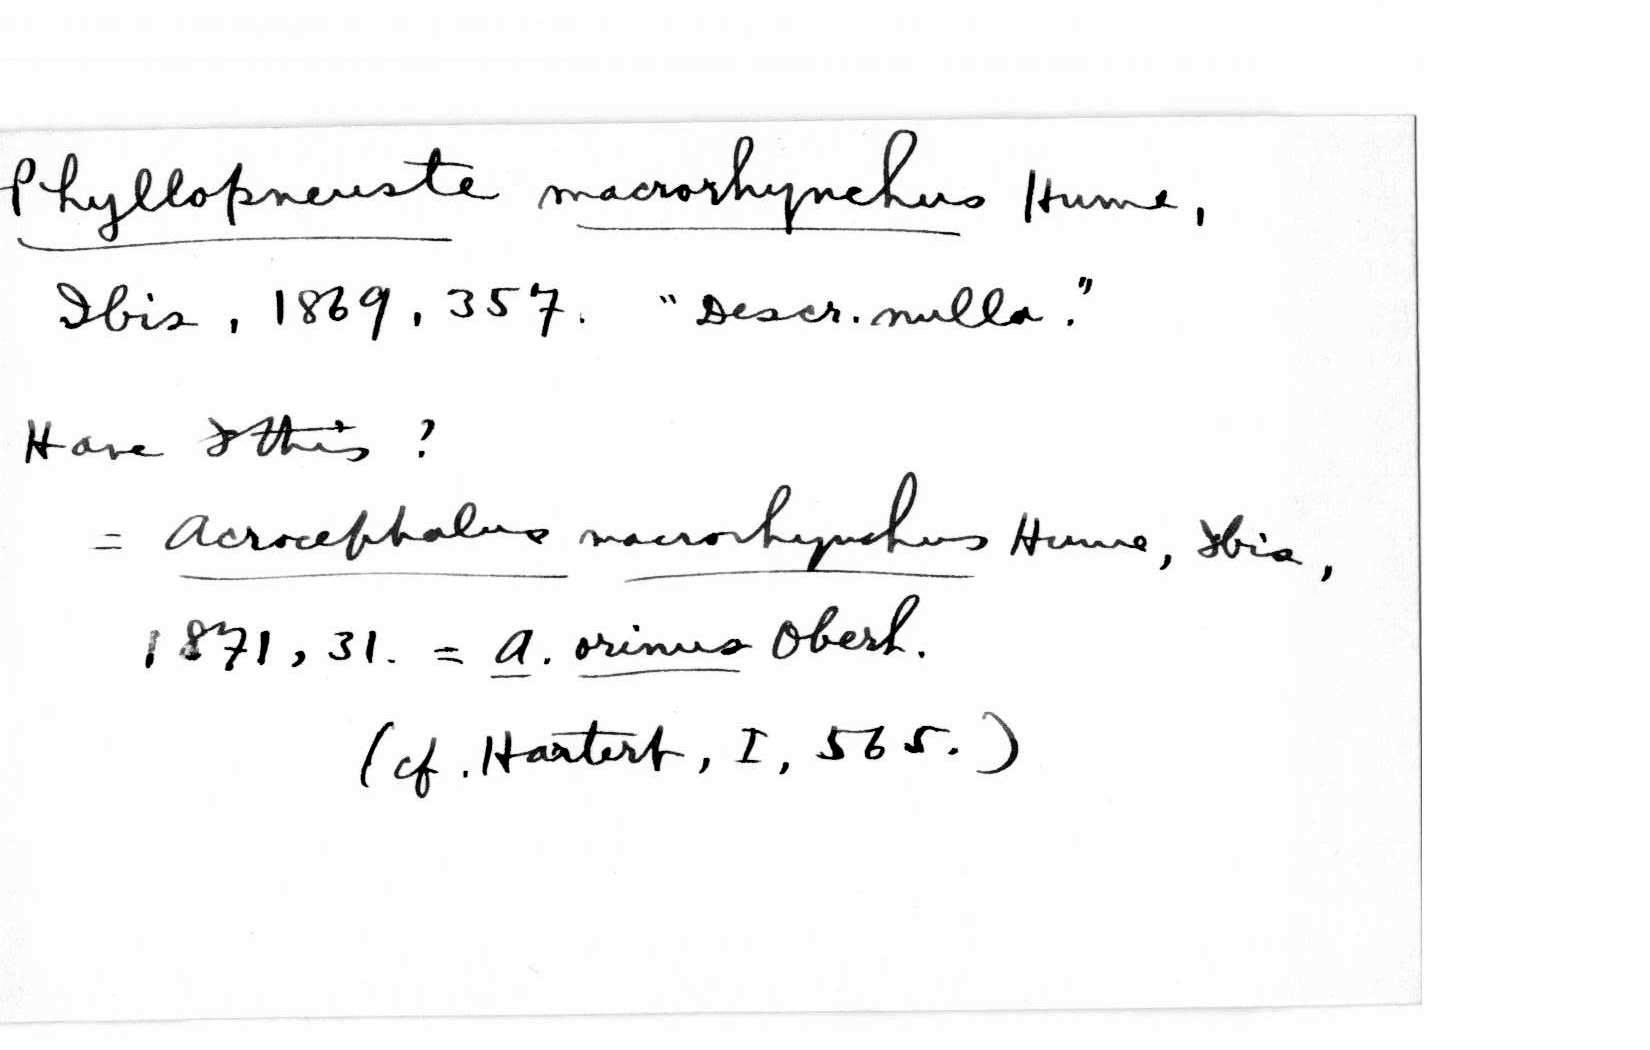 Phyllopneuste macrorhynchus Hume,
Ibis, 1869, 357. "Descr. nulla."
Have I this ?
= Acrocephalus macrorhynchus Hume, Ibis,
1871, 31. = A. orinus Oberh.
(cf. Hartert, I, 565.)